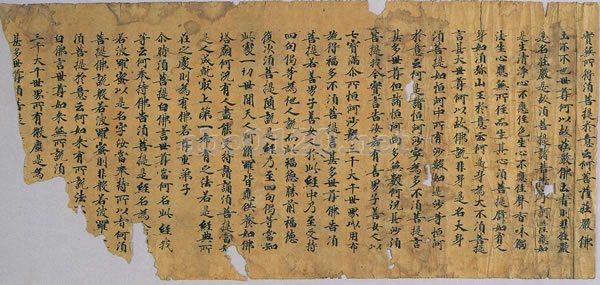 實無所得須菩提於意云何菩薩莊嚴佛
土不不也世尊何以故莊嚴佛土者則非莊嚴
是名莊嚴是故須菩提諸菩薩摩訶薩應如
是生清淨心不應住色生心不應住聲香味觸
法生心應無所住而生其心須菩提譬如有人
身如須弥山王於意云何是身為大不須菩提
言甚大世尊何以故佛說非身是名大身
須菩提如恒河中所有沙數如是沙等恒河
於意云何是諸恒河沙寧為多不須菩提言
甚多世尊但諸恒河尚多無數何況其沙須
菩提我今實言告汝若有善男子善女人以
七寶滿尒所恒河沙數三千大千世界以用布
施得福多不須菩提言甚多世尊佛告須
菩提若善男子善女人於此經中乃至受持
四句偈等為他人說而此福德勝前福德
復次須菩提隨說是經乃至四句偈等當知
此處一切世間天人阿脩羅皆應供養如佛
塔廟何況有人盡能受持讀誦須菩提當知
是人成就最上第一希有之法若是經典所
在之處則為有佛若尊重弟子
尒時須菩提白佛言世尊當何名此經我
等云何奉持佛告須菩提是經名為
若波羅蜜以是名字汝當奉持所以者何須
菩提佛說般若波羅蜜則非般若波羅
須菩提於意云何如來有所說法
白佛言世尊如來無所說須
三千大千世界所有微塵是為
甚多世尊須菩提